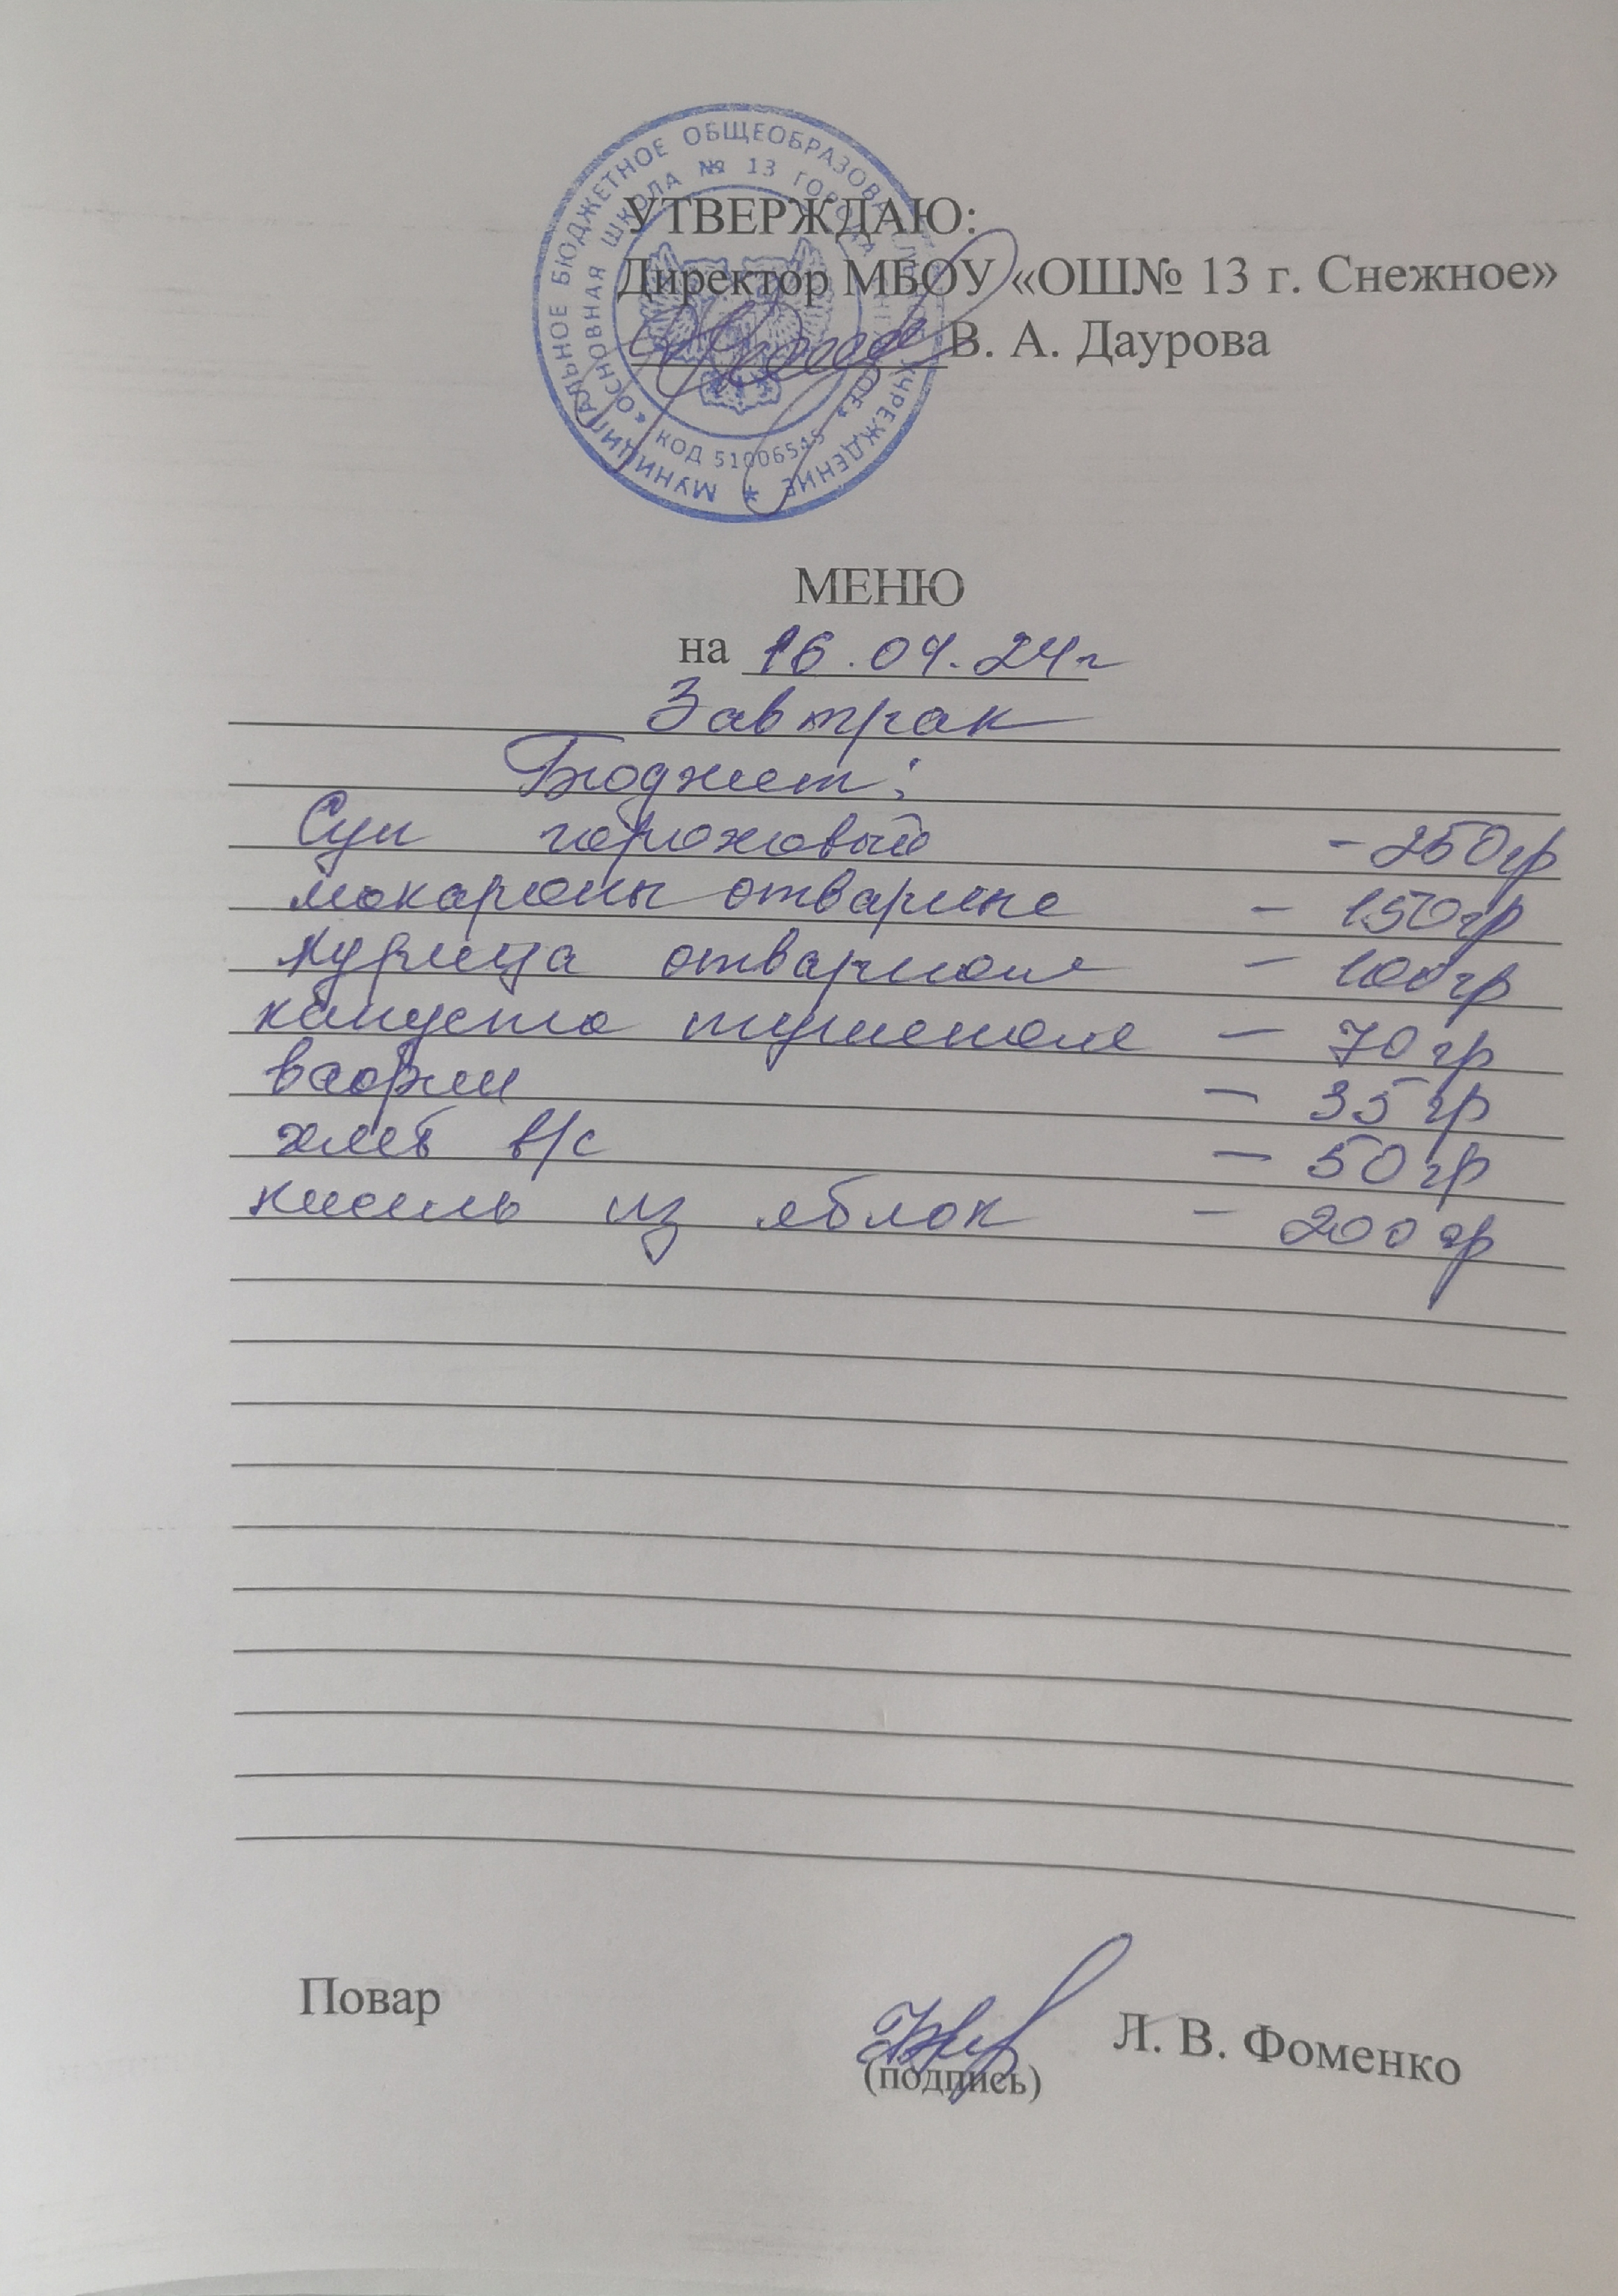 МУНИЦИПАЛЬНОЕ БЮДЖЕТНОЕ ОБЩЕОБРАЗОВАТЕЛЬНОЕ УЧРЕЖДЕНИЕ
«ОСНОВНАЯ ШКОЛА № 13 ГОРОДА СНЕЖНОЕ»
КОД 51006545
УТВЕРЖДАЮ:
Директор МБОУ «ОШ№ 13 г. Снежное»
В. А. Даурова
МЕНЮ
на 16.04.24г
Завтрак
Бюджет:
Суп гороховый - 250гр
макароны отварные - 150гр
курица отварная - 100гр
капуста тушеная - 70гр
вафли - 35гр
хлеб в/с - 50гр
кисель из яблок - 200гр
Повар
Л. В. Фоменко
(подпись)